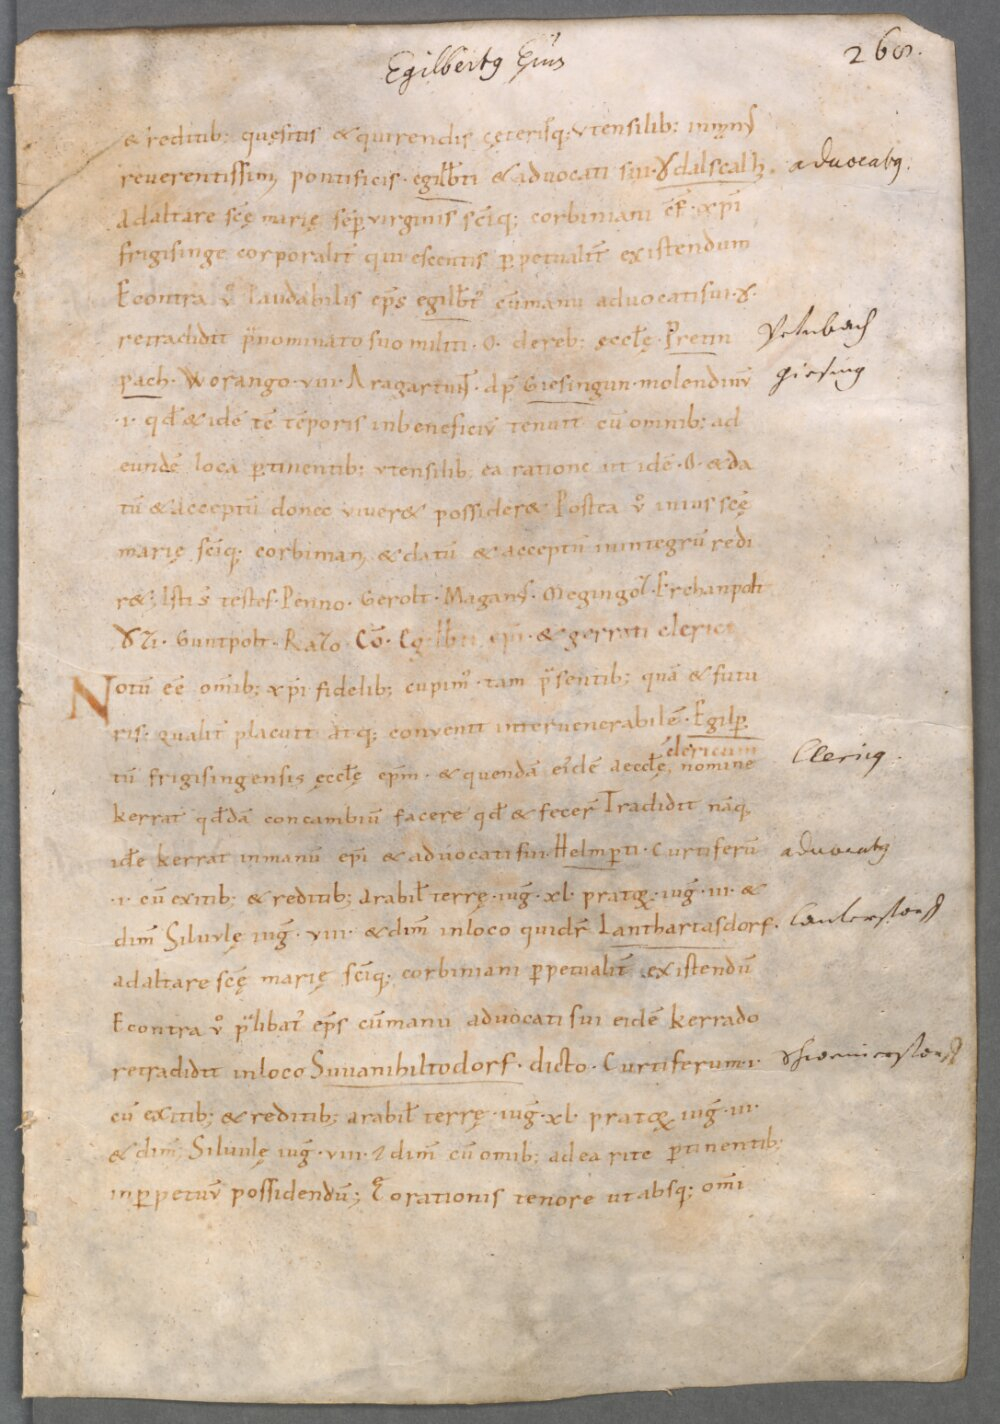 Egilbertꝰ Ep̄us
268.
& reditib: quęsitis & quirendis cęterisq; vtensilib: in manꝰ
reuerentissimi pontificis · egilb̄ti & aduocati sui · Ŏdalscalhi · aduocatꝰ.
Ad altare scę̄ marię sēp virginis scīq; corbiniani cf̄ · xp̄i
frigisinge corporalit̄ quiescentis ꝑpetualit̄ existendum
Econtra v̊ laudabilis ep̄s egilb̄tꝰ cū manu aduocati sui · ŏ ·
retradidit p̄nominato suo militi · O · de reb; ęcclę̄ · Pretin Pretnbach
pach · Worango · viii · Aragartun · ap̄ Giesingun · molendinū giesing
· i · qd̄ & idē tē tēporis in beneficiū tenuit cū omnib: ad
eundē loca ꝑtinentib: vtensilib; ea ratione ut idē · O · & da
tū & acceptū donec viuer& possider& Postea v̊ in ius scę̄
marię scīq; corbiniani & datū & acceptū in integrū redi
r&; Isti s̄ testes · Penno · Gerolt · Magans · Megingoz · Erchanpolt
Ŏzi · Guntpolt · Razo · Cō · Eg·ilb̄ti ep̄i · & gerrati clerici
Notū eē om̄ib; xp̄i fidelib; cupimꝰ · tam p̄sentib; quā & futu
ris · qualit̄ placuit atq; conuenit inter uenerabilē · Egilꝑ
clericum
tū frigisingensis ęcclę̄ ep̄m · & quendā eidē aecclę̄ nomine Clericꝰ.
kerrat qd̄dā concambiū facere qd̄ & fecer̄ Tradidit nāq;
idē kerrat in manū ep̄i & aduocati sui · Helmꝑti · Curtiferū aduocatꝰ
· i · cū exitib; & reditib; arabil̄ terrę · iuḡ · xl · pratoꝝ · iuḡ · iii · &
dim̄ Siluulę iuḡ · viii · & dim̄ in loco quidē Lanthartasdorf · Lanterstorff
ad altare scę̄ marię scīq; corbiniani ꝑpetualit̄ existendū
Econtra v̊ p̄libatꝰ ep̄s cū manu aduocati sui eidē kerrado
retradidit in loco Suuanihiltodorf · dicto · Curtiferum · i ·
cū exitib; & reditib; arabil̄ terrę · iuḡ · xl · pratoꝝ iuḡ · iii ·
& dim̄; Siluulę iuḡ · viii · & dim̄ cū omib; ad ea rite ꝑtinentib;
in ꝑpetuū possidendū; Eo rationis tenore ut absq; om̄i